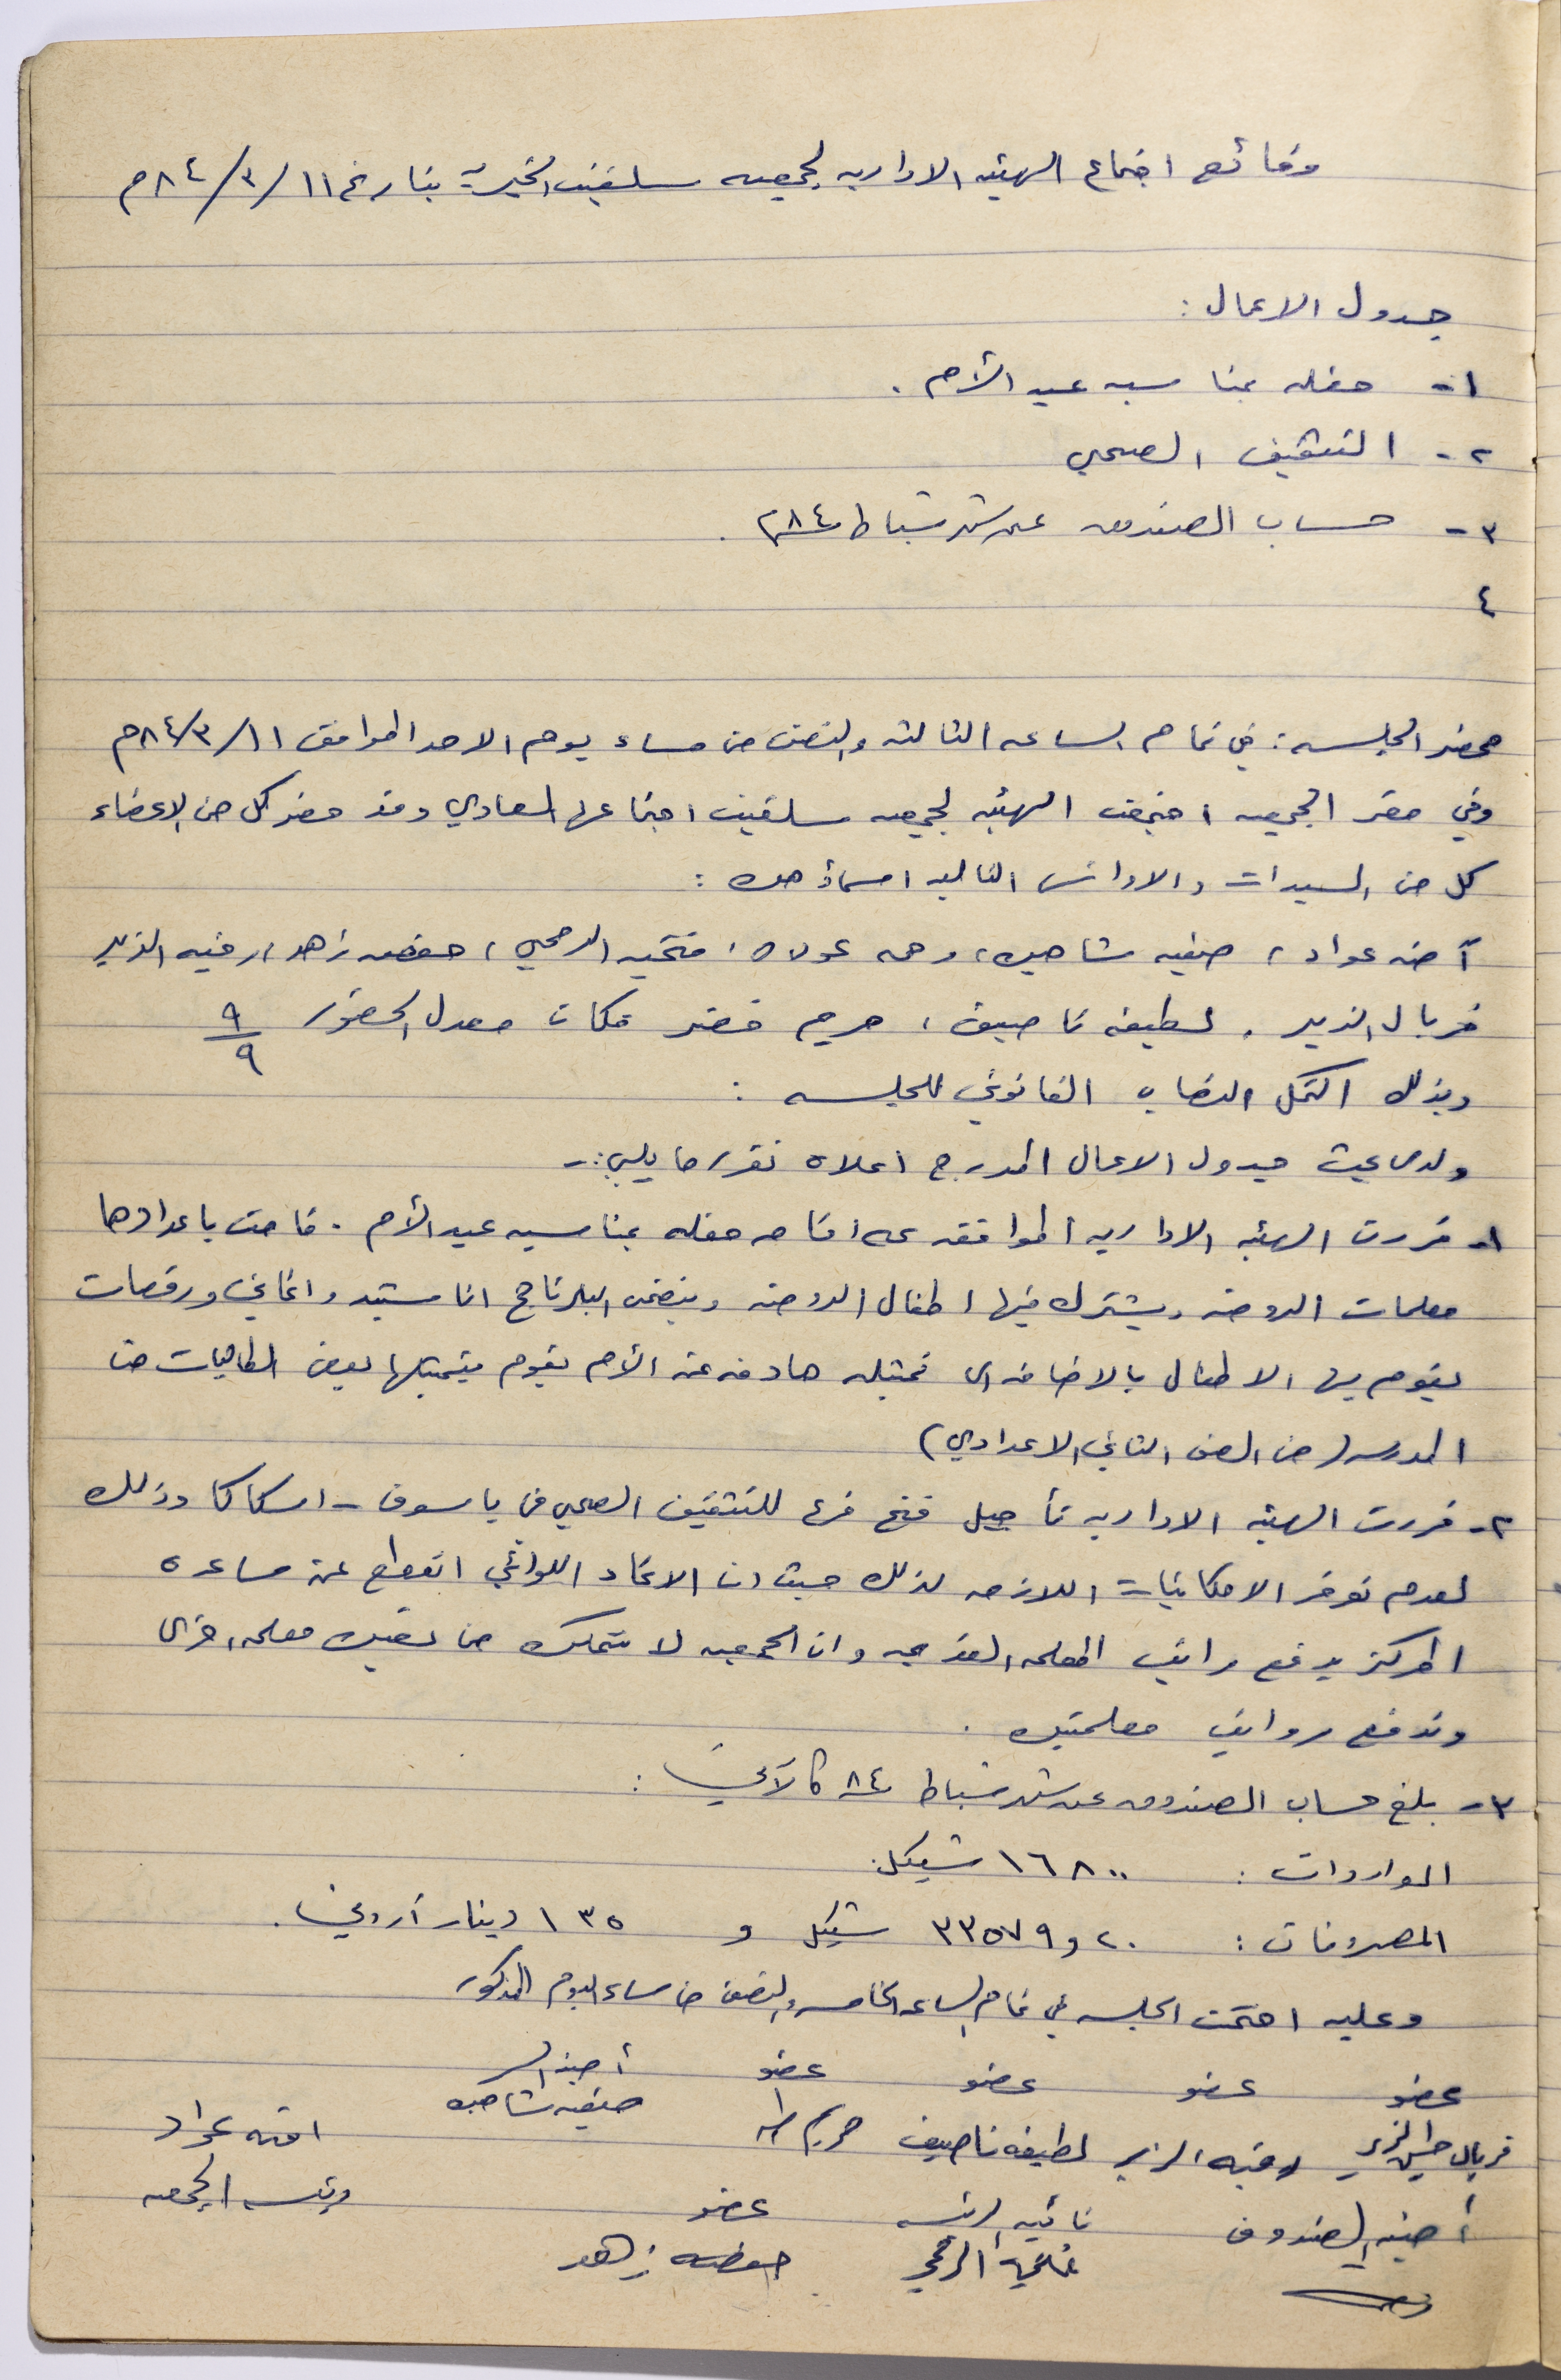 وقائع اجتماع الهيئه الاداريه لجمعيه سلفيت الخيرية بتاريخ ١١/٣/٨٤م
جدول الاعمال :
١- حفله بمناسبه عيد الأم .
٢- التثقيف الصحي
٣- حساب الصندوق عن شهر شباط ٨٤م .
٤
محضر الجلسه : في تمام الساعه الثالثه والنصف من مساء يوم الاحد الموافق ١١/٣/٨٤م
وفي مقر الجمعيه اجتمعت الهيئه لجمعيه سلفيت اجتماعها العادي وقد حضر كل من الاعضاء
كل من السيدات والاوانس التاليه اسماؤهن :
آمنه عواد ، صفيه شاهين ، رحمه عولان ، فتحيه الرمحي ، حفصه زاهد ، رقيه الزير
فريال الزير . لطيفه ناصيف ، مريم خضر فكان معدل الحضور ٩/٩
وبذلك اكتمل النصاب القانوني للجلسه :
ولدى بحث جدول الاعمال المدرج اعلاه تقرر ما يلي :-
١- قررت الهيئه الاداريه الموافقه على اقامه حفله بمناسبه عيد الأم . قامت باعدادها
معلمات الروضه ويشترك فيها اطفال الروضه ويتضمن البرنامج اناشيد واغاني ورقصات
يقوم بها الاطفال بالاضافه الى تمثيليه هادفه عن الأم يقوم بتمثيلها بعض الطالبات من
المدرسه (من الصف الثاني الاعدادي)
٢- قررت الهيئه الاداريه تأجيل فتح فرع للتثقيف الصحي في ياسوف - اسكاكا وذلك
لعدم توفر الامكانيات اللازمه لذلك حيث ان الاتحاد اللوائي انقطع عن مساعدة
المركز بدفع راتب المعلمه وان الجمعيه لا تتمكن من تعيين معلمه اخرى
وتدفع رواتب معلمتين .
٣- بلغ حساب الصندوق عن شهر شباط ٨٤ كالآتي :
الواردات : ١٦٨٠٠ شيكل .
المصروفات : ٢٠و٣٣٥٧٩ شيكل و ١٣٥ دينار أردني .
وعليه اختتمت الجلسه في تمام الساعه الخامسه والنصف من مساء اليوم المذكور
عضو عضو عضو عضو أمينة السر
فريال الزير رقيه الزير لطيفه ناصيف مريم صفيه شاهين امنه عواد
أمينه الصندوق نائبه الرئيسه عضو رئيسه الجمعيه
فتحيه الرمحي حفصه زاهد